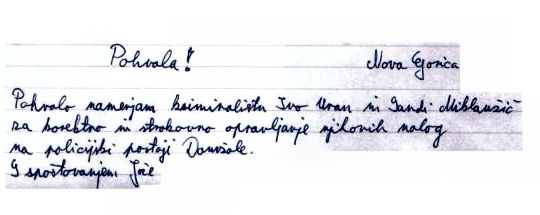 Pohvala! Nova Gorica
Pohvalo namenjam kriminalistu Ivo Uran in Sandi Miklaužič
za korektno in strokovno opravljanje njihovih nalog
na policijski postaji Domžale.
S spoštovanjem Jože